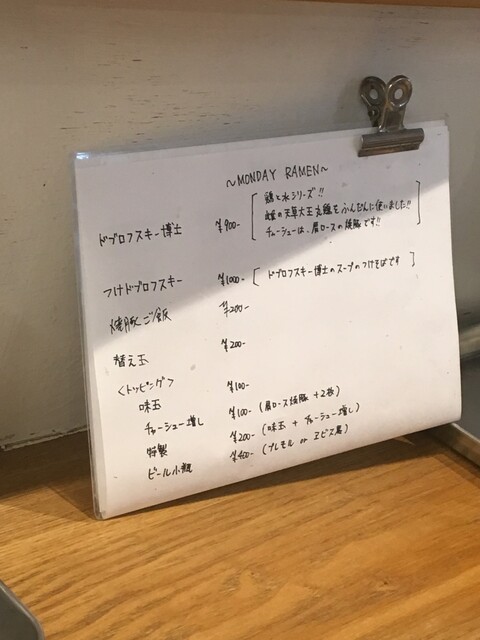 ~MONDAY RAMEN~
ドブロフスキー博士 ¥900- [鶏と水シリーズ!!
の天草大王丸鶏をふんだんに使いました!!
チャーシューは、肩ロースの焼豚です!!]
つけドブロフスキー ¥1000- [ドブロフスキー博士のスープのつけそばです]
焼豚ご飯 ¥200-
替え玉 ¥200-
<トッピング>
味玉 ¥100-
チャーシュー増し ¥100- (肩ロース焼豚+2枚)
特製 ¥200- (味玉 + チャーシュー増し)
ビール小瓶 ¥400- (プレモル or ヱビス黒)